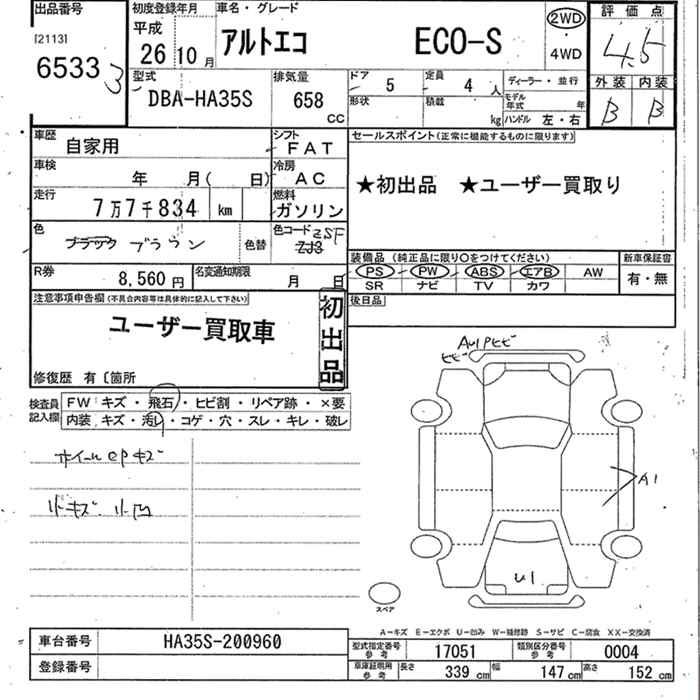 出品番号 初度登録年月 車名・グレード 2WD 評価点
[2113] 平成 アルトエコ ECO-S 4.5
6533 3 26 10月 4WD
型式 排気量 ドア 5 定員 4人 ディーラー・並行 外装 内装
DBA-HA35S 658 cc 形状 積載 kg モデル年式 年 ハンドル 左・右 B B
車歴 自家用 シフト FAT セールスポイント(正常に機能するものに限ります)
車検 年 月( 日) 冷房 AC ★初出品 ★ユーザー買取り
走行 7万7千834 km 燃料 ガソリン
色 ブラック ブラウン 色替 色コード ZSF ZJ3
装備品(純正品に限り○をつけてください) 新車保証書
R券 8,560円 名変通知期限 月 日 PS PW ABS エアB AW 有・無
SR ナビ TV カワ
注意事項申告欄(不具合内容等は具体的に記入して下さい) 初出品 後日品
ユーザー買取車
修復歴 有〔箇所
検査員記入欄 FW キズ・飛石・ヒビ割・リペア跡・×要
内装・キズ・汚レ・コゲ・穴・スレ・キレ・破レ
ホイールcpキズ
小キズ 小凹
AU1Pヒビ
ヒビ
A1
U1
スペア
A-キズ E-エクボ U-凹み W-補修跡 S-サビ C-腐食 XX-交換済
車台番号 HA35S-200960 型式指定番号 参考 17051 類別区分番号 参考 0004
登録番号 車庫証明用 参考 長さ 339 cm 幅 147 cm 高さ 152 cm